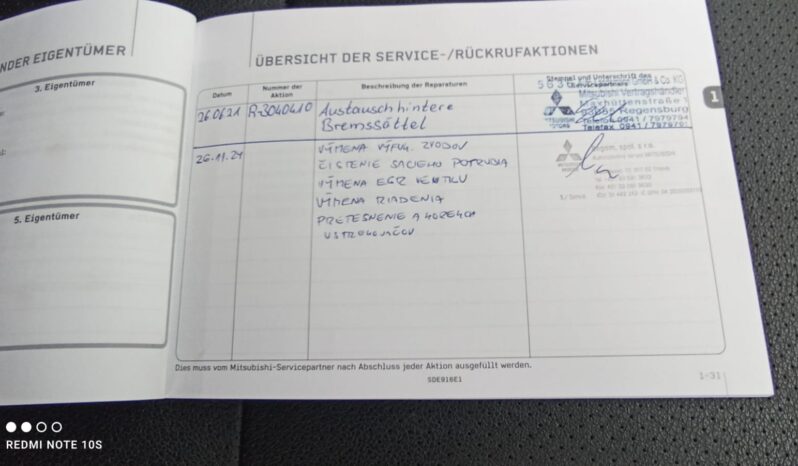 NDER EIGENTÜMER
3. Eigentümer
5. Eigentümer
ÜBERSICHT DER SERVICE-/RÜCKRUFAKTIONEN
Datum
Nummer der Aktion
Beschreibung der Reparaturen
Stempel und Unterschrift des Servicepartners
GmbH & Co. KG
Mitsubishi Vertragshändler
Maxhüttenstraße 1
93055 Regensburg
0941 / 7979794
Telefax 0941 / 797979
1
26.06.21
R-3040410
Austausch hintere
Bremssättel
26.11.21
VÝMENA VÝFUK. ZVODOV
ČISTENIE SACIEHO POTRUBIA
VÝMENA EGR VENTILU
VÝMENA RIADENIA
PRETESNENIE A
spol. s r.o.
MITSUBISHI
Dies muss vom Mitsubishi-Servicepartner nach Abschluss jeder Aktion ausgefüllt werden.
SDE916E1
1-31
REDMI NOTE 10S